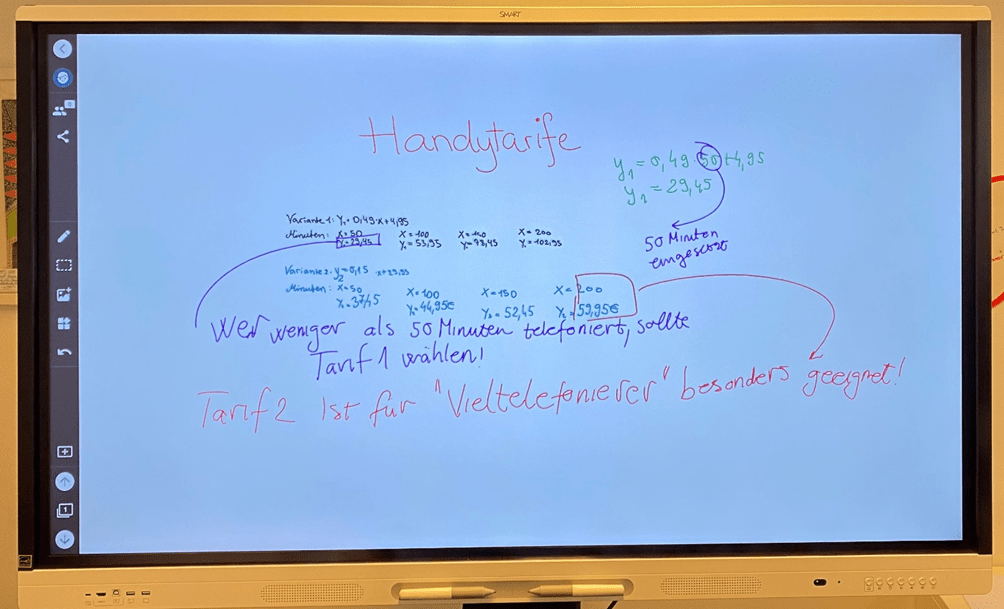 SMART
Handytarife
y₁ = 0,49·50+4,95
y₁ = 29,45
50 Minuten
eingesetzt
Variante 1: y₁=0,49·x+4,95
Minuten: x=50 x=100 x=150 x=200
y₁=29,45 y₁=53,95 y₁=78,45 y₁=102,95
Variante 2: y₂=0,15·x+29,95
Minuten: x=50 x=100 x=150 x=200
y₂=37,45 y₂=44,95€ y₂=52,45 y₂=59,95€
Wer weniger als 50 Minuten telefoniert, sollte
Tarif 1 wählen!
Tarif 2 ist für "Vieltelefonierer" besonders geeignet!
1